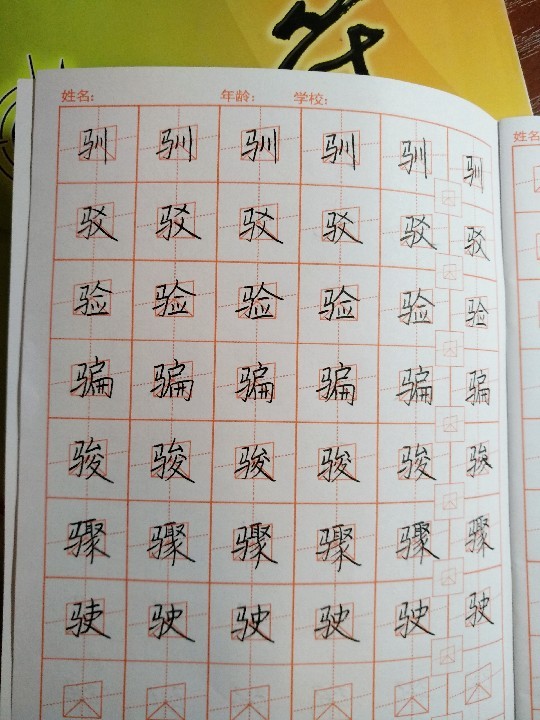 姓名: 年龄: 学校:
驯 驯 驯 驯 驯 驯
驳 驳 驳 驳 驳 驳
验 验 验 验 验 验
骗 骗 骗 骗 骗 骗
骏 骏 骏 骏 骏 骏
骤 骤 骤 骤 骤 骤
驶 驶 驶 驶 驶 驶
姓名